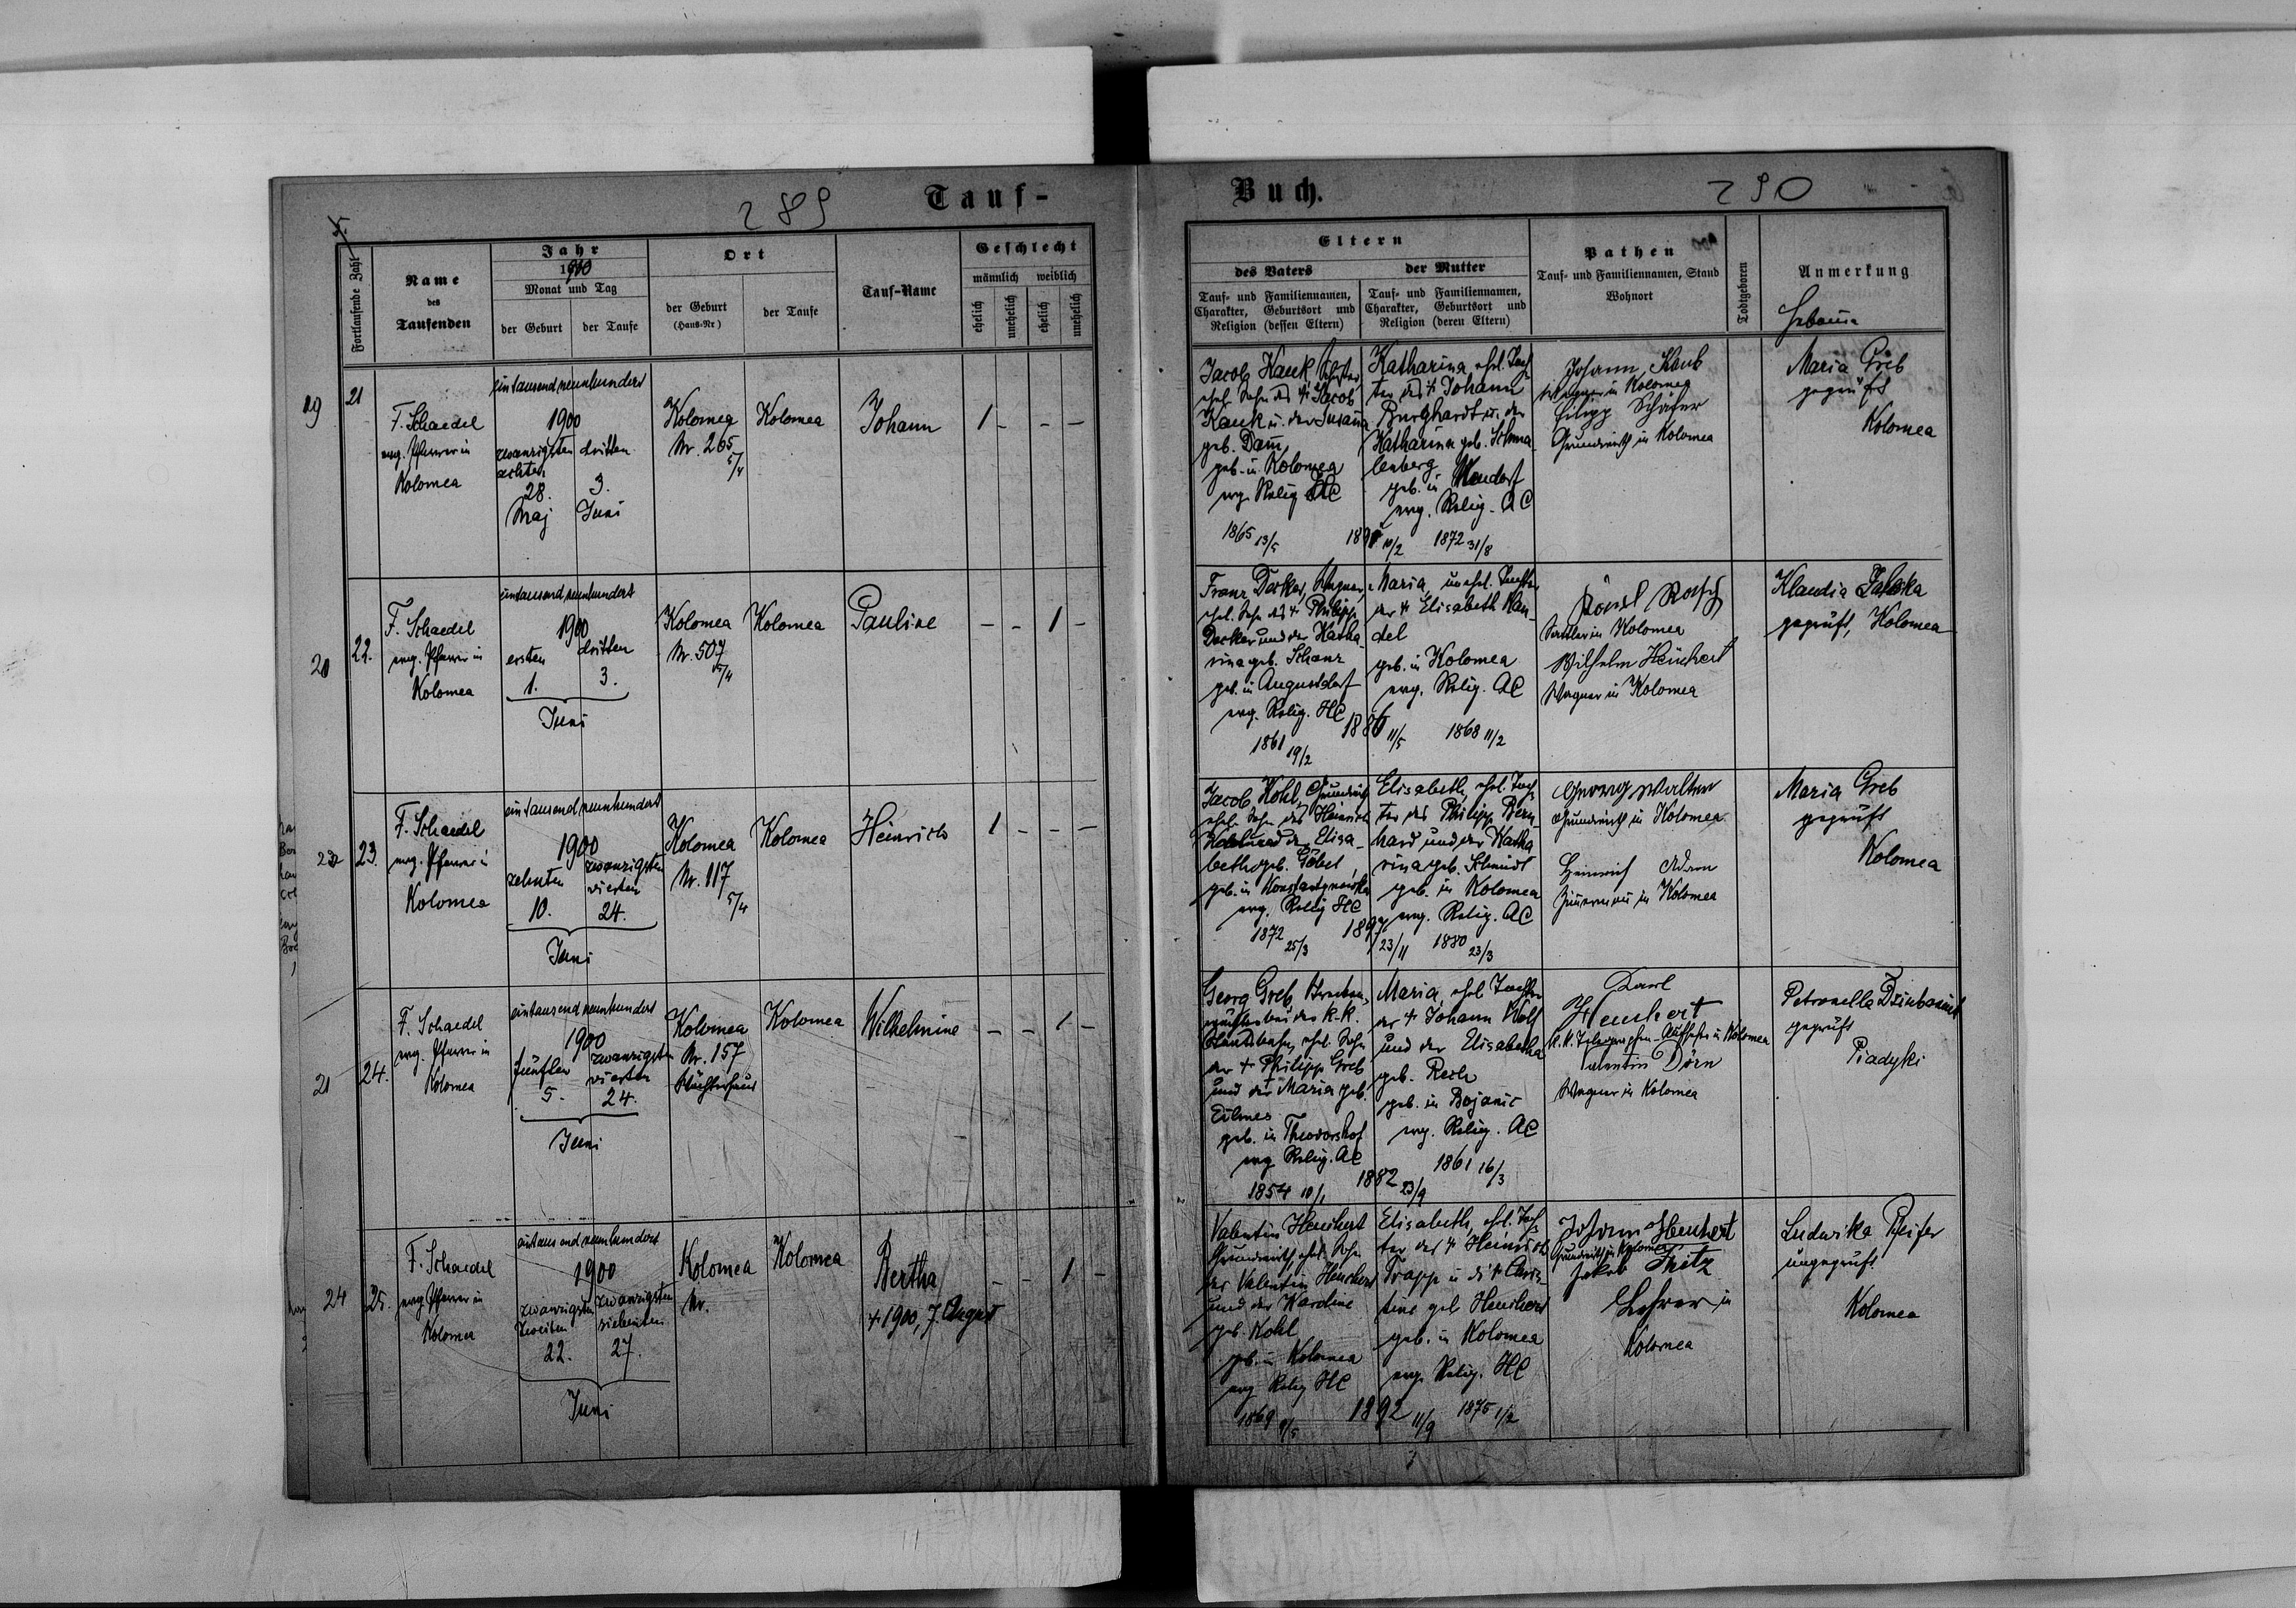 289
Tauf-
Buch.
290
Fortlaufende Zahl
Name
des
Taufenden
Jahr
1900
Monat und Tag
der Geburt
der Taufe
Ort
der Geburt
(Haus-Nr)
der Taufe
Tauf-Name
Geschlecht
männlich
weiblich
ehelich
unehelich
ehelich
unehelich
Eltern
des Vaters
Tauf- und Familiennamen,
Charakter, Geburtsort und
Religion (dessen Eltern)
der Mutter
Tauf- und Familiennamen,
Charakter, Geburtsort und
Religion (deren Eltern)
Pathen
Tauf- und Familiennamen, Stand
Wohnort
Todtgeboren
Anmerkung
19
21
F. Schaedel
evg. Pfarrer in
Kolomea
eintausend neunhundert
1900
zwanzigsten
achten
28.
Maj
dritten
3.
Juni
Kolomea
Nr. 265
5/4
Kolomea
Johann
1 - - -
Jacob Kauk
ehel. Sohn des + Jacob
Kauk u. der Susanna
geb. Dam
geb. in Kolomea
evg. Relig HC
1865 13/5
Katharina, ehel. Toch
ter des + Johann
Burghardt u. der
Katharina geb. Schma
lenberg
geb. in
evg. Relig. AC
10/2 1872 31/8
Johann Kaub
Wagner in Kolomea
Filipp Schäfer
Grundwirth in Kolomea
Maria Greb
geprüft
Kolomea
20
22.
F. Schaedel
evg. Pfarrer in
Kolomea
eintausend neunhundert
1900
ersten
1.
dritten
3.
Juni
Kolomea
Nr. 507
Kolomea
Pauline
- - 1 -
Franz Decker, Wagner,
ehel. Sohn des + Philipp
Decker und der Katha
rina geb. Schanz
geb. in Augustdorf
evg. Relig. HC
1861 19/2
Maria, unehel. Tochter
der + Elisabeth Man
del
geb. in Kolomea
evg. Relig. AC
1886 11/5 1868 11/2
Sattler in Kolomea
Wilhelm Heuchert
Wagner in Kolomea
Klaudia
geprüft, Kolomea
23.
F. Schaedel
evg. Pfarrer i
Kolomea
eintausend neunhundert
1900
zehnten
10.
zwanzigsten
vierten
24.
Juni
Kolomea
Nr. 117
5/4
Kolomea
Heinrich
1 - - -
Jacob Kohl, Grundwirth
ehel. Sohn des Heinrich
Kohl und der Elisa
beth geb. Göbel,
geb. in Konstantynowka
evg. Relig HC
1872 25/3
Elisabeth, ehel. Toch
ter des Philipp Bern
hard und der Katha
rina geb. Schmidt
geb. in Kolomea
evg. Relig. AC
1897 23/11 1880 23/3
Georg Walter
Grundwirth in Kolomea
Heinrich Adam
Zimmermann in Kolomea
Maria Greb
geprüft
Kolomea
21
24.
F. Schaedel
evg. Pfarrer in
Kolomea
eintausend neunhundert
1900
fünften
5.
zwanzigsten
vierten
24.
Juni
Kolomea
Nr. 157
Wächterhaus
Kolomea
Wilhelmine
- - 1 -
Georg Greb, Strecken
wächter bei der k. k.
Staatsbahn, ehel. Sohn
der + Philipp Greb
und der Maria geb.
Eilmes
geb. in Theodorshof
evg Relig. AC
1854 10/1
Maria, ehel Tochter
der + Johann Wolf
und der Elisabetha
geb. Rech
geb. in Bojanic
evg. Relig. AC
1882 23/9 1861 16/3
Karl
Heuchert
k. k. Telegraphen-Aufseher in Kolomea
Valentin Dörn
Wagner in Kolomea
Petronella
geprüft
Piadyki
24
25.
F. Schaedel
evg Pfarrer in
Kolomea
eintausend neunhundert
1900
zwanzigsten
zweiten
22.
zwanzigsten
siebenten
27.
Juni
Kolomea
Nr.
Kolomea
Bertha
+ 1900, 7. August
- - 1 -
Valentin Heuchert
Grundwirth, ehel. Sohn
des Valentin Heuchert
und der Karoline
geb. Kohl
geb. in Kolomea
evg Relig HC
1869 9/5
Elisabeth, ehel. Toch
ter des + Heinrich
Trapp u der + Chris
tine geb Heuchert
geb. in Kolomea
evg. Relig. HC
1892 11/9 1875 1/2
Johann Heuchert
Grundwirth in Kolomea
Jakob
Lehrer in
Kolomea
Ludwika Pfeifer
ungeprüft
Kolomea